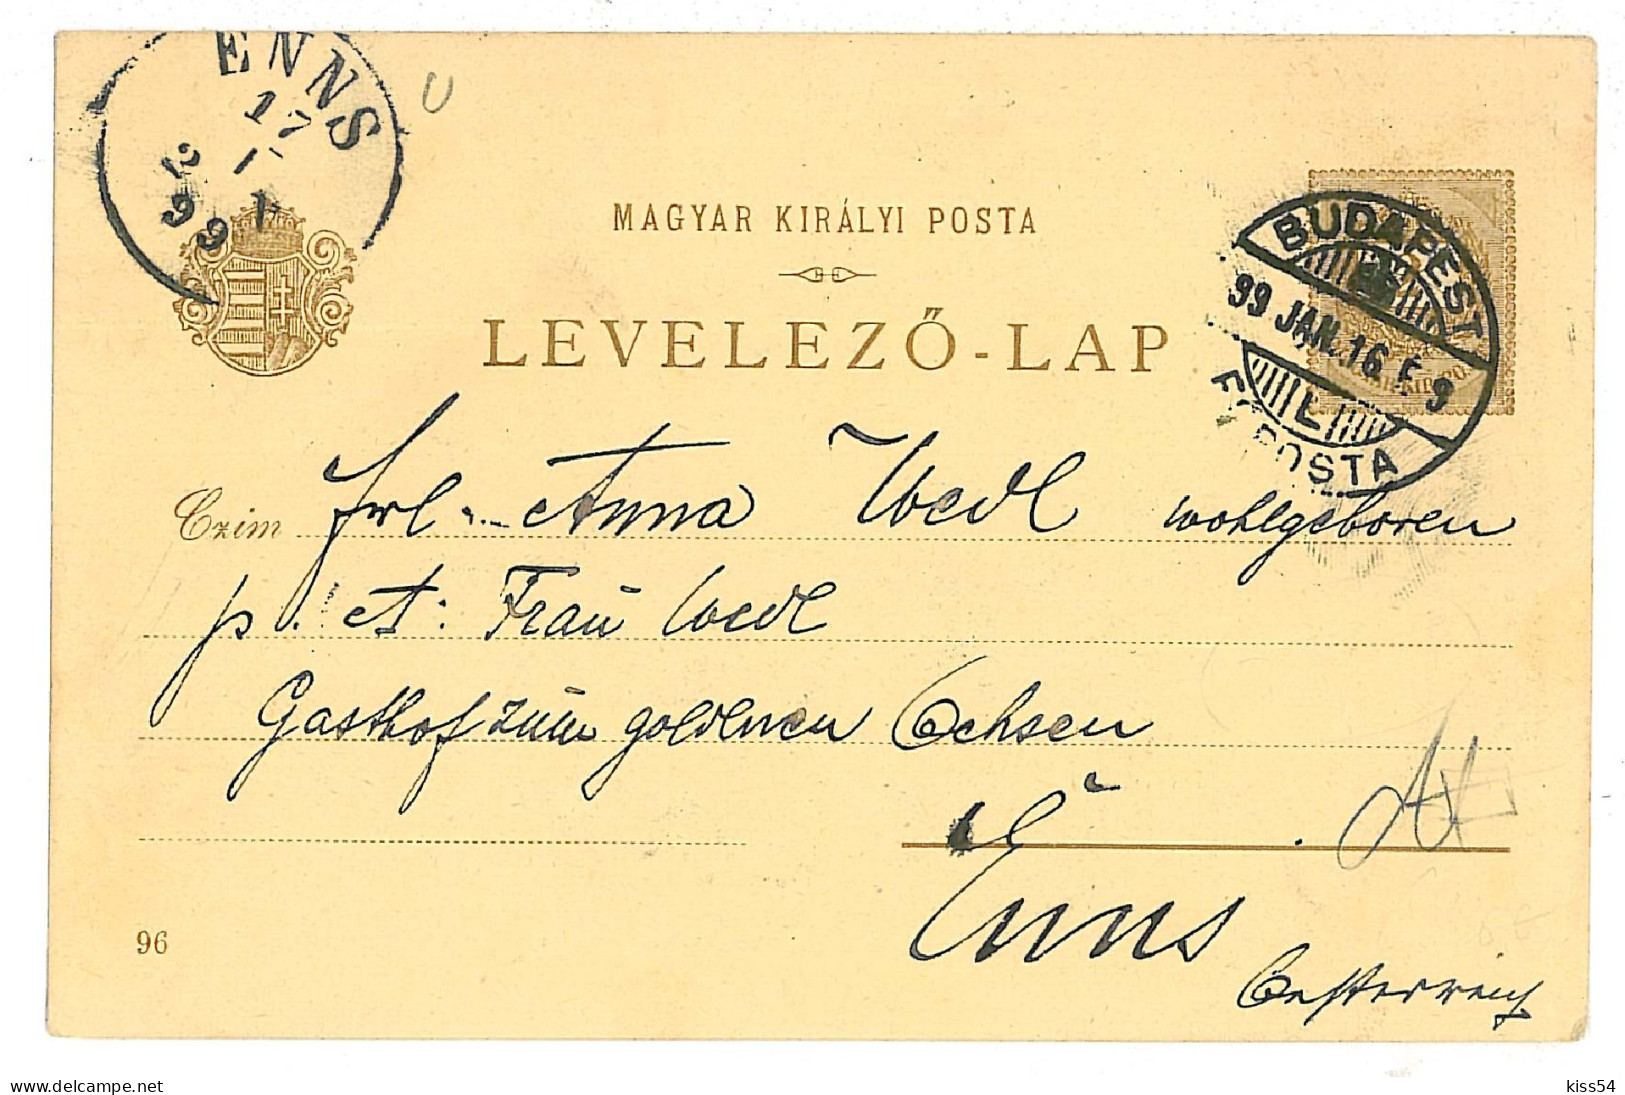 ENNS
17
1
99
MAGYAR KIRÁLYI POSTA
LEVELEZŐ-LAP
BUDAPEST
99 JAN. 16. E 9
L
FŐPOSTA
Czim Frl. Anna Wedl wohlgeboren
p. A: Frau Wedl
Gasthof zum goldenen Ochsen
Enns
Oesterreich
96
delcampe.net
kiss54